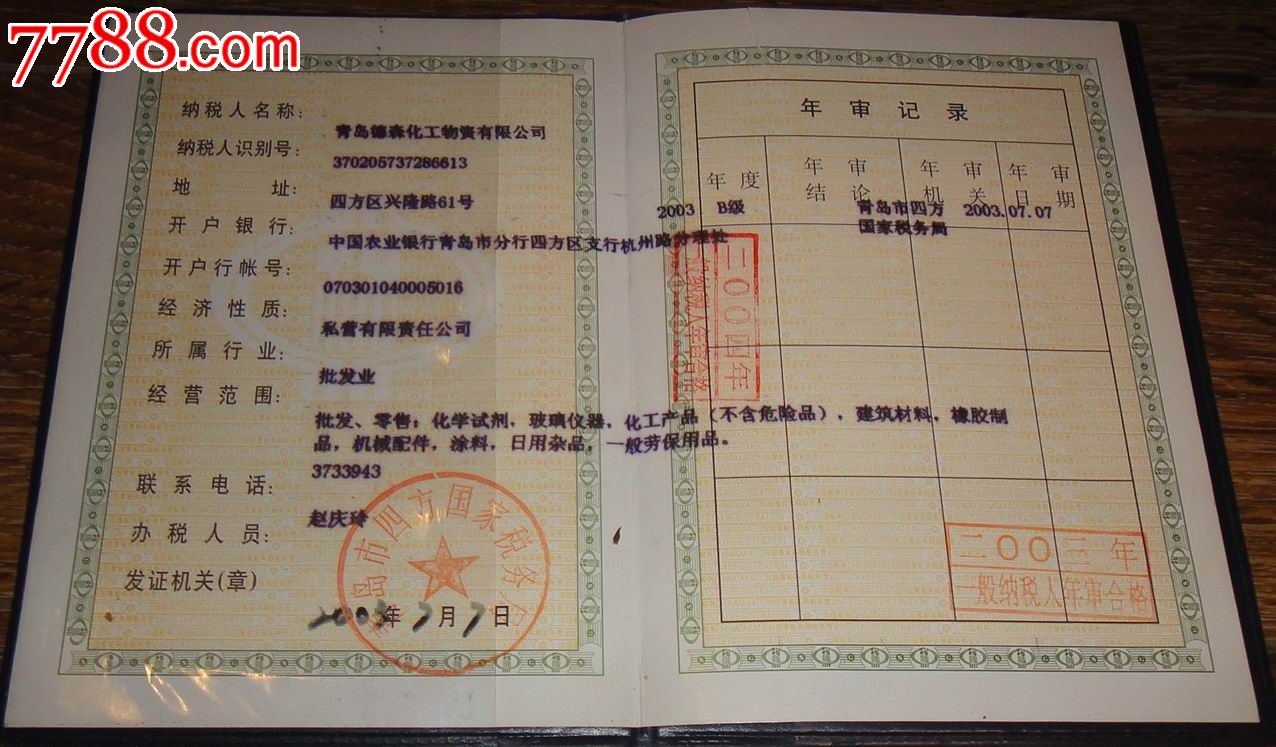 7788.com
纳税人名称：
青岛德森化工物资有限公司
纳税人识别号：
370205737286613
地 址：
四方区兴隆路61号
开户银行：
中国农业银行青岛市分行四方区支行杭州路分理处
开户行帐号：
070301040005016
经济性质：
私营有限责任公司
所属行业：
批发业
经营范围：
批发、零售：化学试剂，玻璃仪器，化工产品（不含危险品），建筑材料，橡胶制
品，机械配件，涂料，日用杂品，一般劳保用品。
联系电话：
3733943
办税人员：
赵庆玲
发证机关(章)
岛市四方国家税务
2003年7月7日
年审记录
年度
年审结论
年审机关
年审日期
2003 B级 青岛市四方 2003.07.07
国家税务局
二00四年
一般纳税人年审合格
二00三年
一般纳税人年审合格